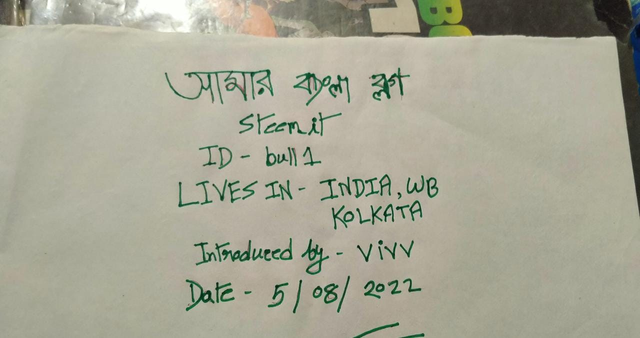 আমার বাংলা ব্লগ
Steemit
ID - bull1
LIVES IN - INDIA, WB
KOLKATA
Introduced by - Vivv
Date - 5/08/2022